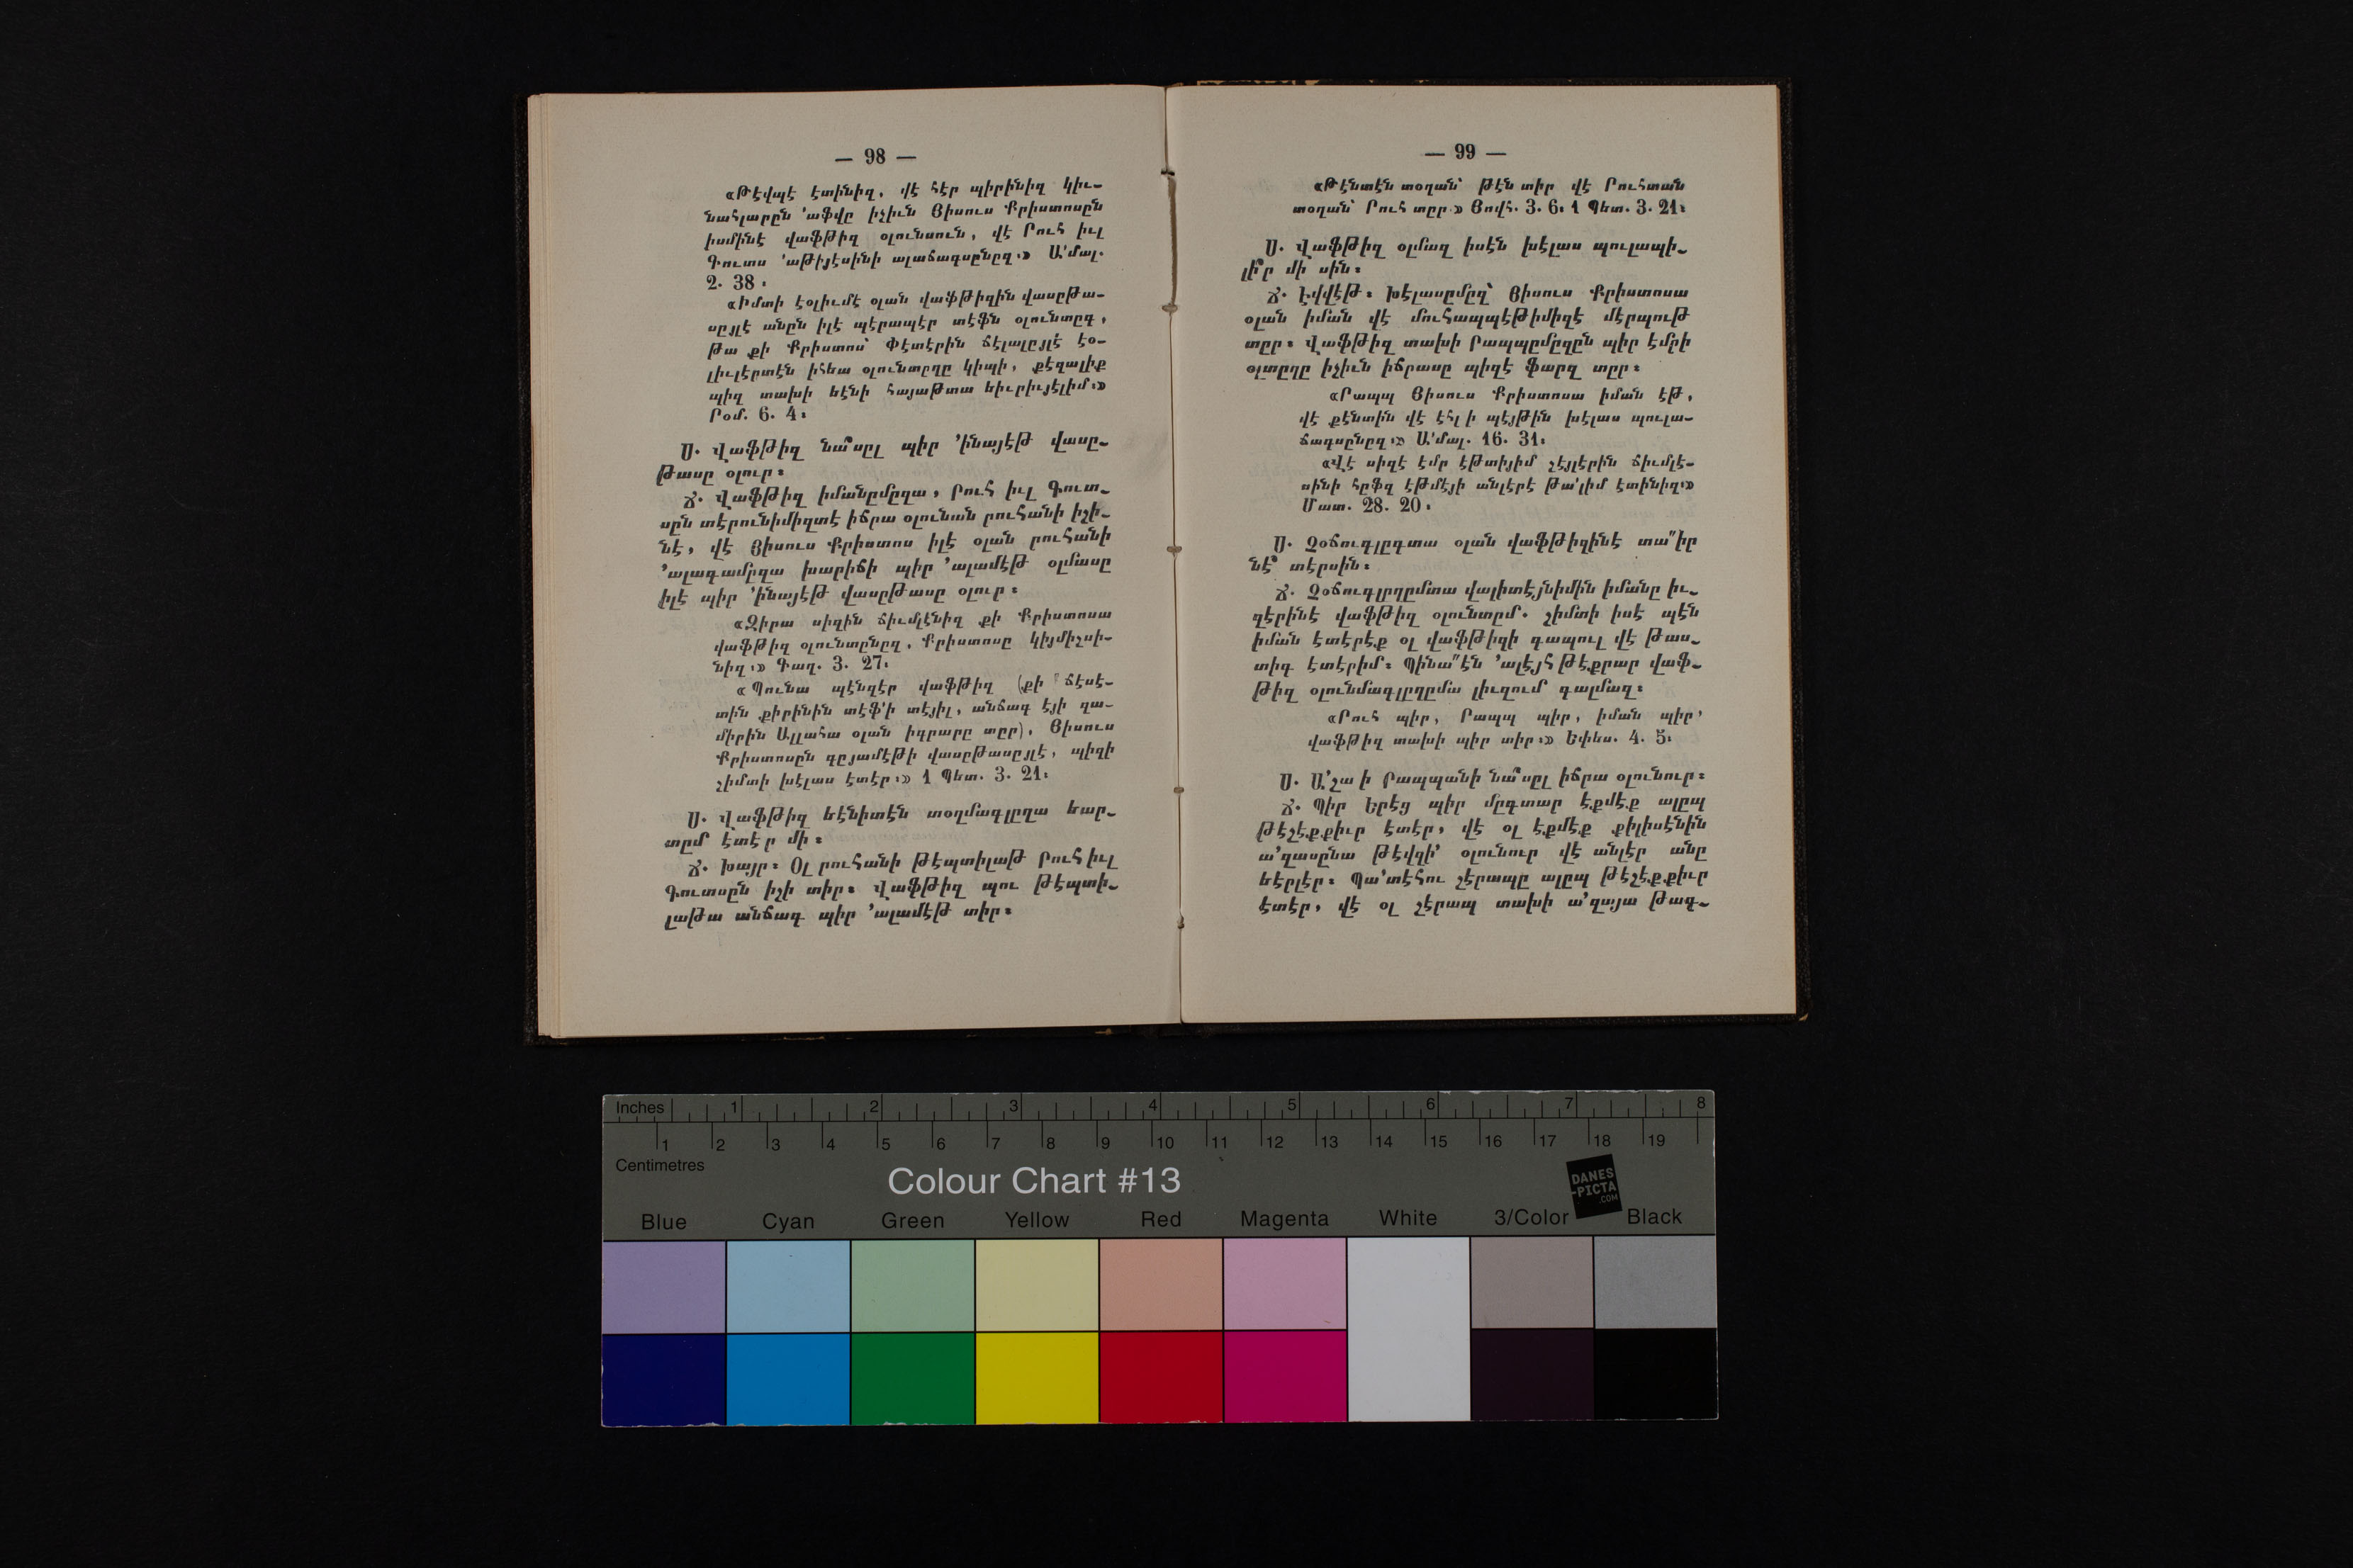 — 98 —
«Թէվպէ էտինիզ, վէ հէր պիրինիզ կիւ-
նահլարըն ՚աֆվը իչիւն Յիսուս Քրիստոսըն
իսմինէ վաֆթիզ օլունսուն, վէ Րուհ իւլ
Գուտս ՚աթիյէսինի ալաճագսընըզ։» Ա՛մալ.
2. 38։
«Իմտի էօլիւմէ օլան վաֆթիզին վասըթա-
սըյլէ անըն իլէ պէրապէր տէֆն օլունտըգ,
թա քի Քրիստոս՝ Փէտէրին ճէլալըյլէ էօ-
լիւլէրտէն իհեա օլունտըղը կիպի, քէզալիք
պիզ տախի եէնի հայաթտա եիւրիւյէլիմ։»
Րօմ. 6. 4։
Ս. Վաֆթիզ նա՞սըլ պիր ՚ինայէթ վասը-
թասը օլուր։
Ճ. Վաֆթիզ իմանըմըզա, Րուհ իւլ Գուտ-
սըն տէրունիմիզտէ իճրա օլունան րուհանի իշի-
նէ, վէ Յիսուս Քրիստոս իլէ օլան րուհանի
՚ալագամըզա խարիճի պիր ՚ալամէթ օլմասը
իլէ պիր ՚ինայէթ վասըթասը օլուր։
«Զիրա սիզին ճիւմլէնիզ քի Քրիստոսա
վաֆթիզ օլունտընըզ, Քրիստոսը կիյմիշսի-
նիզ։» Գաղ. 3. 27։
«Պունա պէնզէր վաֆթիզ (քի ճէսէ-
տին քիրինին տէֆ՚ի տէյիլ, անճագ էյի զա-
միրին Ալլահա օլան իգրարը տըր), Յիսուս
Քրիստոսըն գըյամէթի վասըթասըյլէ, պիզի
շիմտի խէլաս էտէր։» 1 Պետ. 3. 21։
Ս. Վաֆթիզ եէնիտէն տօղմագլըղա եար-
տըմ էտէր մի։
Ճ. Խայր։ Օլ րուհանի թէպտիլաթ Րուհ իւլ
Գուտսըն իշի տիր։ Վաֆթիզ պու թէպտի-
լաթա անճագ պիր ՚ալամէթ տիր։
— 99 —
«Թէնտէն տօղան՝ թէն տիր վէ Րուհտան
տօղան՝ Րուհ տըր։» Յովհ. 3. 6։ 1 Պետ. 3. 21։
Ս. Վաֆթիզ օլմազ իսէն խէլաս պուլապի-
լի՞ր մի սին։
Ճ. Էվվէթ։ Խէլասըմըզ՝ Յիսուս Քրիստոսա
օլան իման վէ մուհապպէթիմիզէ մէրպութ
տըր։ Վաֆթիզ տախի Րապպըմըզըն պիր էմրի
օլտըղը իչիւն իճրասը պիզէ ֆարզ տըր։
«Րապպ Յիսուս Քրիստոսա իման էթ,
վէ քէնտին վէ էհլի պէյթին խէլաս պուլա-
ճագսընըզ։» Ա՛մալ. 16. 31։
«Վէ սիզէ էմր էթտիյիմ շէյլէրին ճիւմլէ-
սինի հըֆզ էթմէյի անլէրէ թա՛լիմ էտինիզ։»
Մատ. 28. 20։
Ս. Չօճուգլըգտա օլան վաֆթիզինէ տա՛՛իր
նէ՞ տէրսին։
Ճ. Չօճուգլըղըմտա վալիտէյնիմին իմանը իւ-
զէրինէ վաֆթիզ օլունտըմ. շիմտի իսէ պէն
իման էտէրէք օլ վաֆթիզի գապուլ վէ թաս-
տիգ էտէրիմ։ Պինա՛՛էն ՚ալէյհ թէքրար վաֆ-
թիզ օլունմագլըղըմա լիւզում գալմազ։
«Րուհ պիր, Րապպ պիր, իման պիր,
վաֆթիզ տախի պիր տիր։» Եփես. 4. 5։
Ս. Ա՛շա ի Րապպանի նա՞սըլ իճրա օլունուր։
Ճ. Պիր Երէց պիր մըգտար էքմէք ալըպ
թէշէքքիւր էտէր, վէ օլ էքմէք քիլիսէնին
ա՛զասընա թէվզի՛ օլունուր վէ անլէր անը
եէրլէր։ Պա՛տէհու շէրապը ալըպ թէշէքքիւր
էտէր, վէ օլ շէրապ տախի ա՛զայա թագ-
Inches 1 2 3 4 5 6 7 8
1 2 3 4 5 6 7 8 9 10 11 12 13 14 15 16 17 18 19
Centimetres
Colour Chart #13
DANES
-PICTA
.COM
Blue Cyan Green Yellow Red Magenta White 3/Color Black